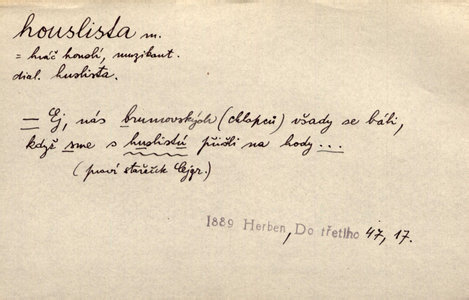 houslista m.
= hráč houslí, muzikant.
dial. huslista.
— Ej, nás brumovských (chlapců) všady se báli,
když sme s huslistú přišli na hody ...
(praví stařeček Cejgr.)
1889 Herben, Do třetího 47, 17.